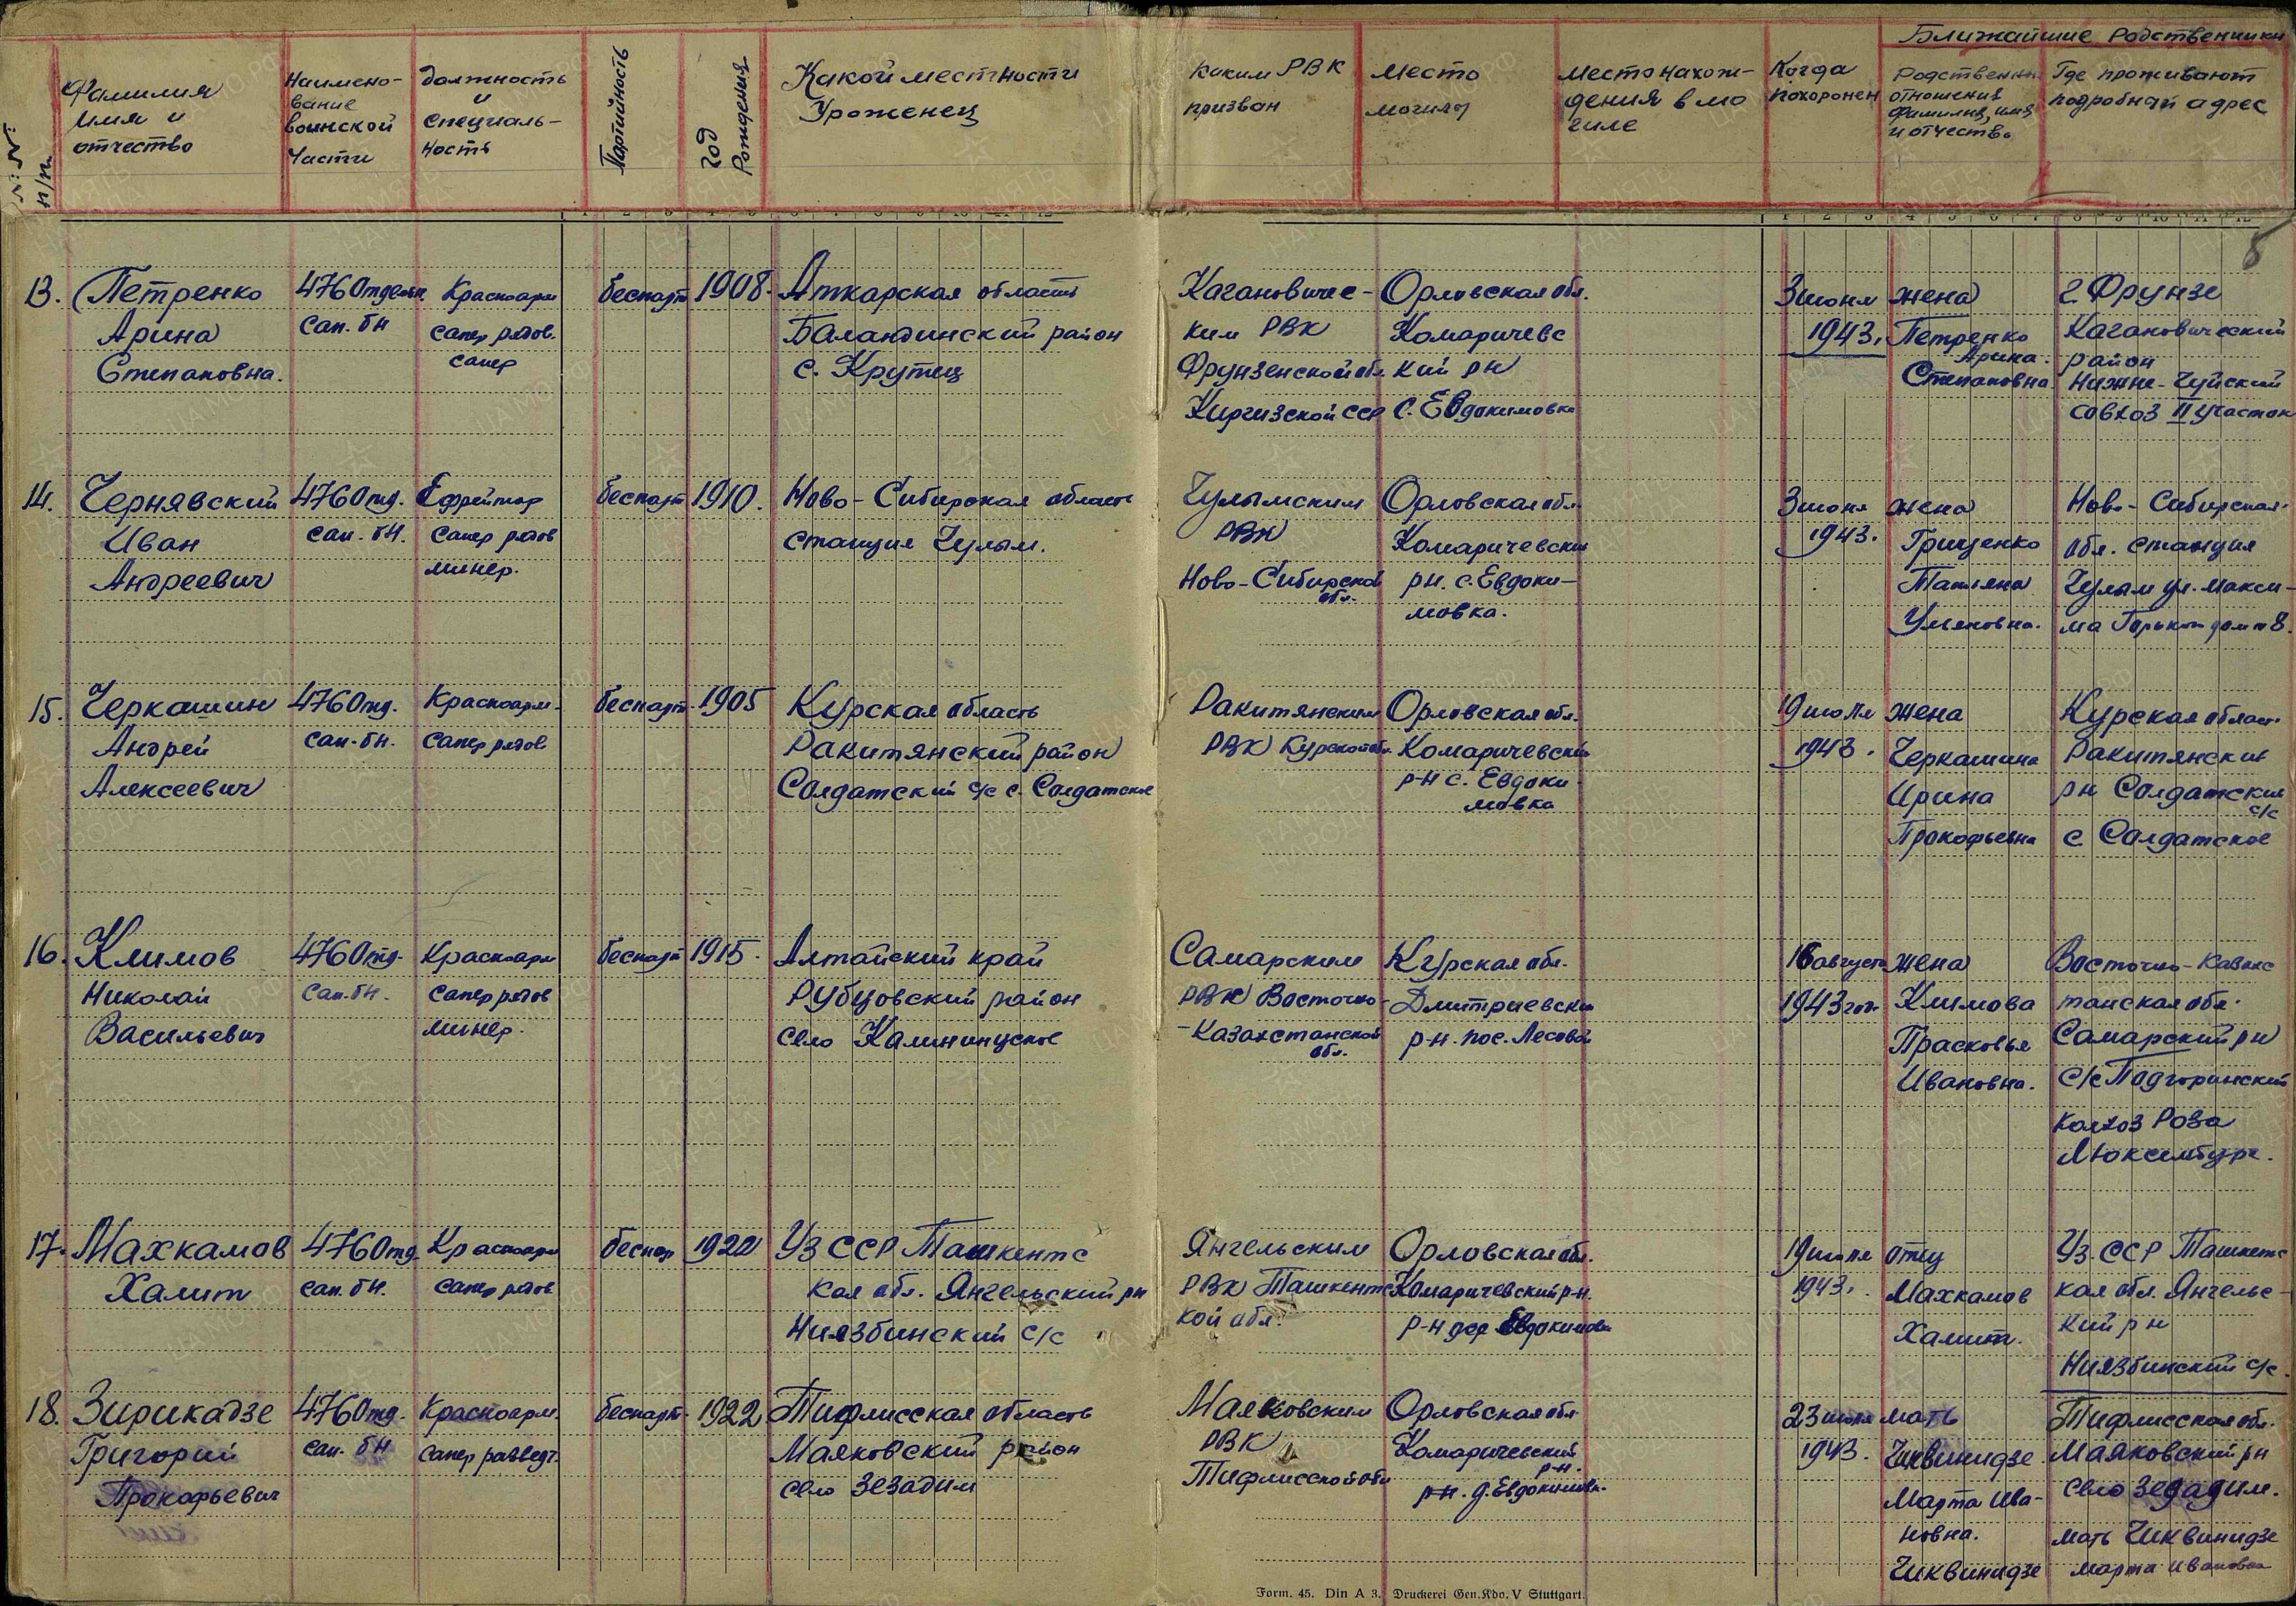 №№ п/п
Фамилия имя и отчество
Наимено-
вание
воинской
части
Должность
и
специаль-
ность
Партийность
Год Рождения
Какой местности
Уроженец
Каким РВК
призван
Место
могилы
Место нахож-
дения в мо
гиле
Когда
похоронен
Ближайшие родственники
Родственн
отношения
фамилия, имя
и отчество
Где проживают
подробный адрес
8
13. Петренко
Арина
Степановна.
476 Отдельн.
сап. бн
Красноарм
сапер рядов.
сапер
беспарт
1908.
Аткарская область
Баландинский район
с. Крутец
Кагановичес-
ким РВК
Фрунзенской обл.
Киргизской ССР
Орловская обл.
Комаричевс
кий рн
С. Евдокимовка
3 июня
1943.
жена
Петренко
Арина.
Степановна.
г Фрунзе
Кагановический
район
Нижне-Чуйский
совхоз II участок
14. Чернявский
Иван
Андреевич
476 отд.
сап. бн.
Ефрейтор
сапер рядов
минер.
беспарт
1910.
Ново-Сибирская область
станция Чулым.
Чулымским
РВК
Ново-Сибирской
обл.
Орловская обл.
Комаричевский
рн. с. Евдоки-
мовка.
3 июня
1943.
жена
Грищенко
Татьяна
Ульяновна.
Ново-Сибирская.
обл. станция
Чулым ул. Макси-
ма Горького дом № 8.
15. Черкашин
Андрей
Алексеевич
476 отд.
сап. бн.
Красноарм.
сапер рядов
беспарт.
1905
Курская область
Ракитянский район
Солдатский с/с с. Солдатское
Ракитянским
РВК Курской обл.
Орловская обл.
Комаричевский
р-н с. Евдоки-
мовка
19 июля
1943.
жена
Черкашина
Ирина
Прокофьевна
Курская област.
Ракитянский
рн Солдатский
с/с
с Солдатское
16. Климов
Николай
Васильевич
476 отд.
Сап. бн.
Красноарм
сапер рядов
минер.
беспарт
1915.
Алтайский край
Рубцовский район
село Калининуское
Самарским
РВК Восточно-
-Казахстанской
обл.
Курская обл.
Дмитриевский
р-н. пос. Лесовой
16 августа
1943 год.
жена
Климова
Прасковья
Ивановна.
Восточно-Казахс
танская обл.
Самарский рн
с/с Подгоринский
колхоз Роза
Люксембург.
17. Махкамов
Халит
476 отд.
сап. бн.
Красноарм
сапер рядов
беспар
1922
Уз ССР Ташкентс
кая обл. Янгельский рн
Ниязбинский с/с
Янгельским
РВК Ташкентс
кой обл.
Орловская обл.
Комаричевский р-н.
р-н дер Евдокимовка
19 июля
1943.
отец
Махкамов
Халит.
Уз. ССР Ташкентс
кая обл. Янгельс-
кий рн
Ниязбинский с/с.
18. Зирикадзе
Григорий
Прокофьевич
476 отд.
сап. бн
Красноарм.
сапер разведч.
беспарт.
1922
Тифлисская область
Маяковский район
село Зезадим
Маяковским
РВК
Тифлисской обл
Орловская обл
Комаричевский
р-н.
р-н. д. Евдокимовка.
23 июля
1943.
мать
Чиквинидзе
Марта Ива-
новна.
Чиквинидзе
Тифлисская обл.
Маяковский рн
село Зедадим.
мать Чиквинидзе
Марта Ивановна
Form. 45. Din A 3. Druckerei Gen.Kdo. V Stuttgart.